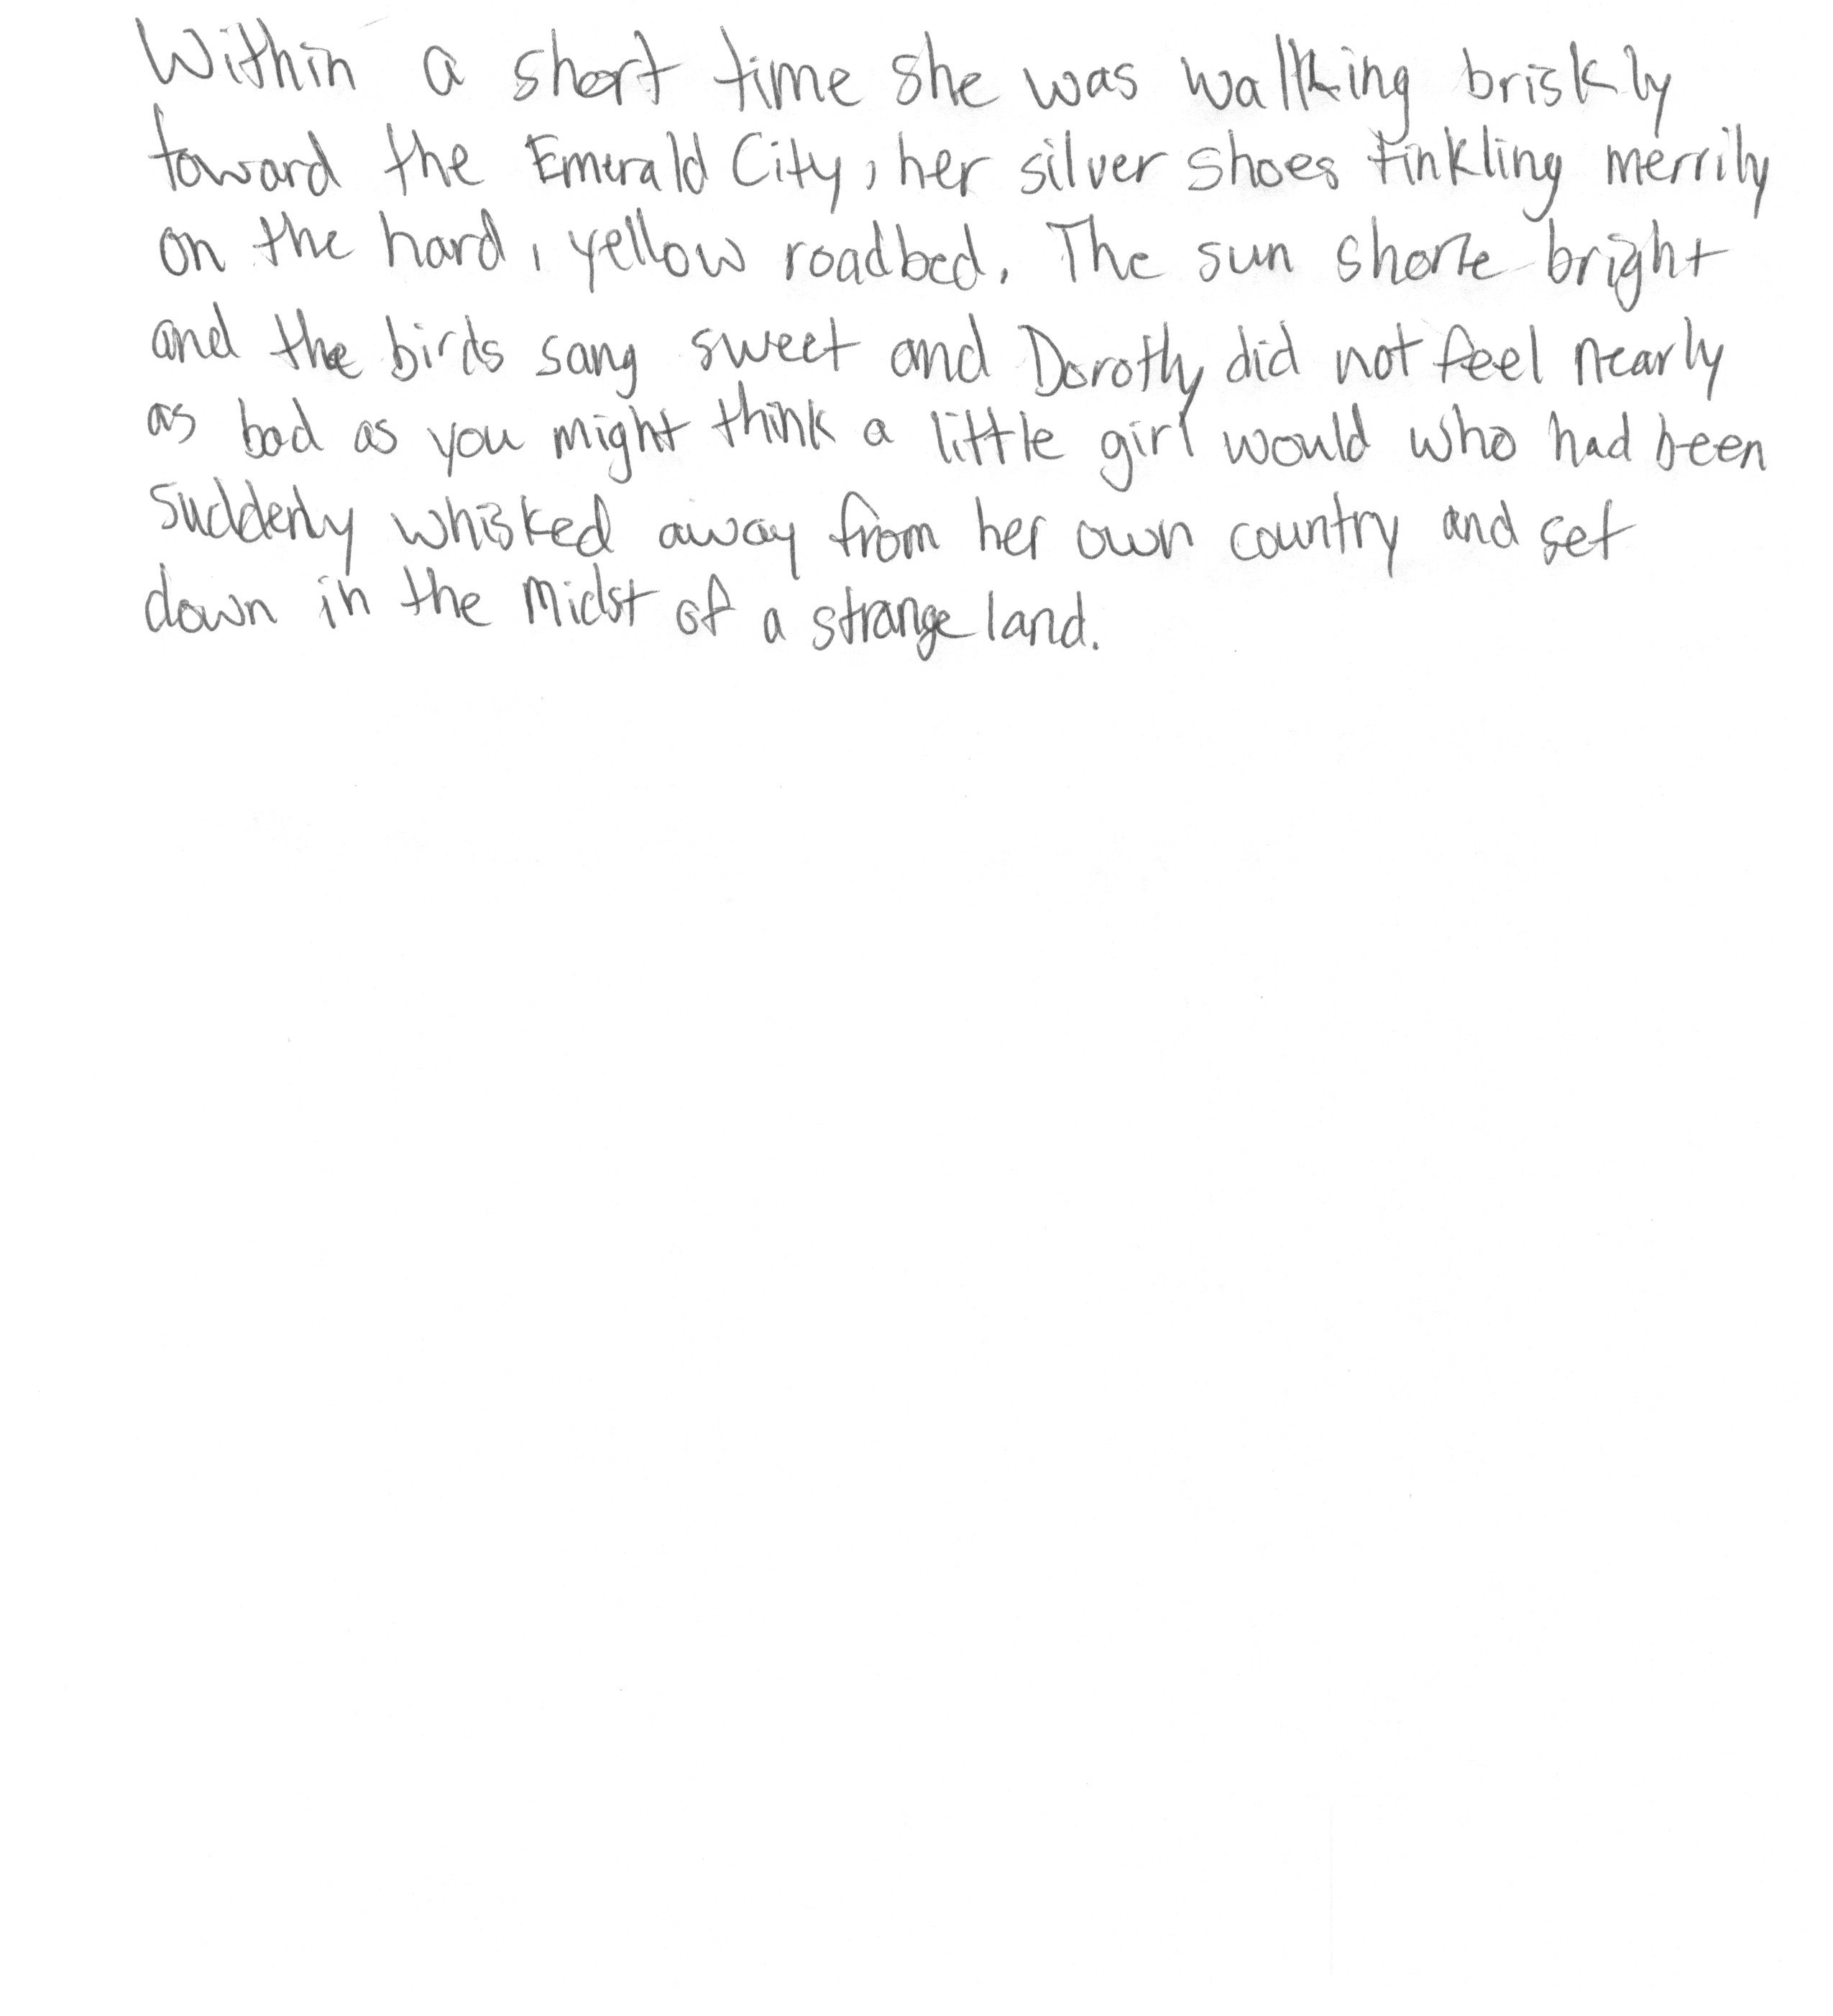 Within a short time she was walking briskly
toward the Emerald City, her silver shoes tinkling merrily
on the hard, yellow roadbed. The sun shone bright
and the birds sang sweet and Dorothy did not feel nearly
as bad as you might think a little girl would who had been
suddenly whisked away from her own country and set
down in the midst of a strange land.